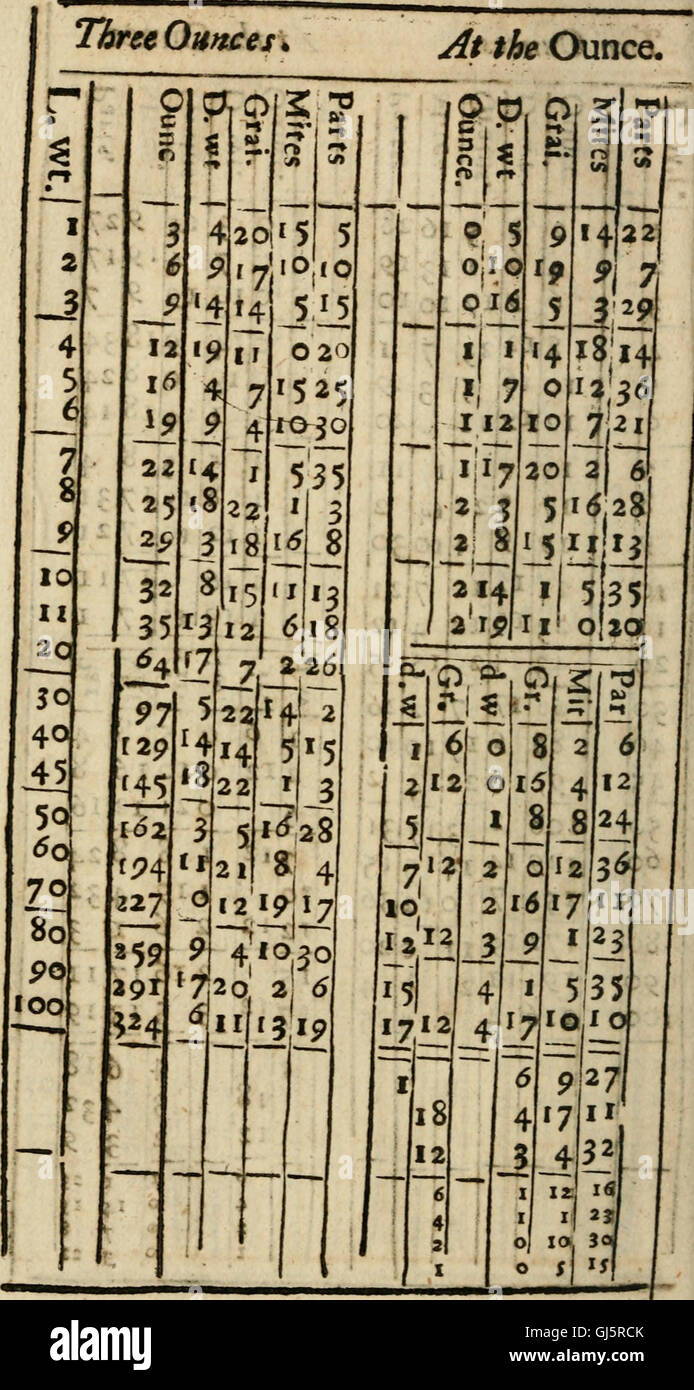 Three Ounces. At the Ounce.
L. wt. Ounc D. wt Grai. Mites Parts Ounce. D. wt Grai. Mites Parts
1 3 4 20 15 5 0 5 9 14 22
2 6 9 17 10 10 0 10 19 9 7
3 9 14 14 5 15 0 16 5 3 29
4 12 19 11 0 20 1 1 14 18 14
5 16 4 7 15 25 1 7 0 12 36
6 19 9 4 10 30 1 12 10 7 21
7 22 14 1 5 35 1 17 20 2 6
8 25 18 22 1 3 2 3 5 16 28
9 29 3 18 16 8 2 8 15 11 13
10 32 8 15 11 13 2 14 1 5 35
11 35 13 12 6 18 2 19 11 0 20
20 64 17 7 2 26 d. w Gr. d w Gr. Mit Par
30 97 5 22 14 2
40 129 14 14 5 15 1 6 0 8 2 6
45 145 18 22 1 3 2 12 0 16 4 12
50 162 3 5 16 28 5 1 8 8 24
60 194 11 21 8 4 7 12 2 0 12 36
70 227 0 12 19 17 10 2 16 17 11
80 259 9 4 10 30 12 12 3 9 1 23
90 291 17 20 2 6 15 4 1 5 35
100 324 6 11 13 19 17 12 4 17 10 10
1 6 9 27
18 4 17 11
12 3 4 32
6 1 12 16
4 1 1 23
2 0 10 30
1 0 5 15
alamy
Image ID: GJ5RCK
www.alamy.com